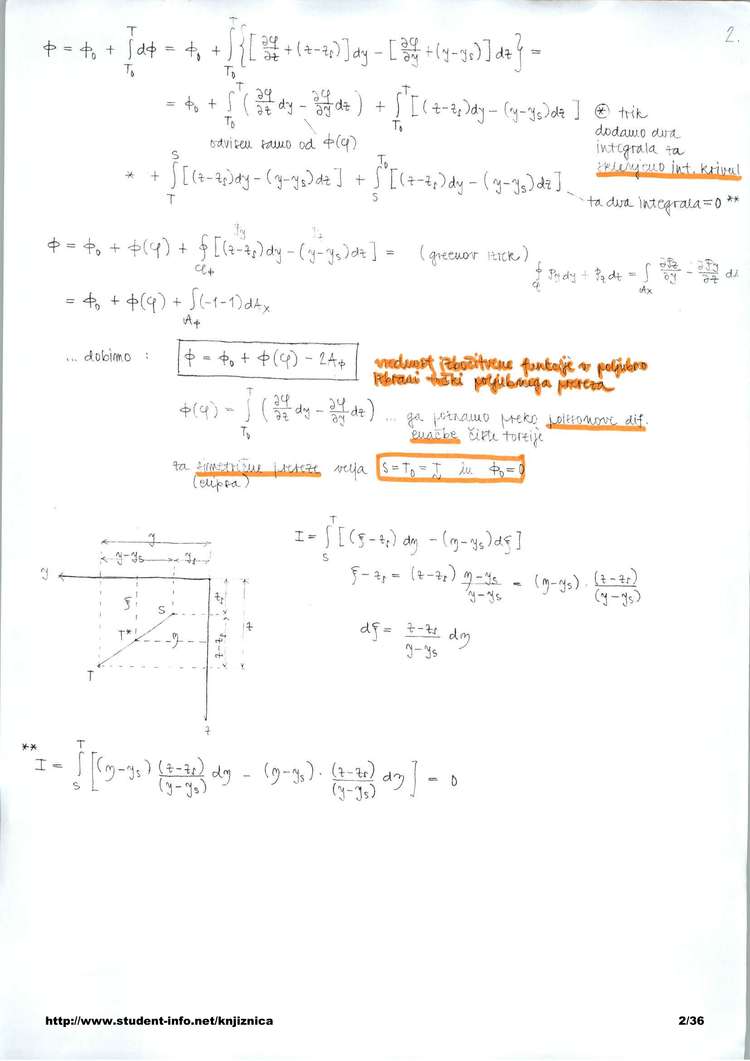 2.
ϕ = ϕ₀ + ∫_{T₀}^{T} dϕ = ϕ₀ + ∫_{T₀}^{T} {[∂φ/∂z + (z-z_s)] dy - [∂φ/∂y + (y-y_s)] dz} =
= ϕ₀ + ∫_{T₀}^{T} (∂φ/∂z dy - ∂φ/∂y dz) + ∫_{T₀}^{T} [(z-z_s)dy - (y-y_s)dz] ⊛ trik
odvisen samo od ϕ(φ)
dodamo dva
integrala za
sklenjeno int. krivul
* + ∫_{T}^{S} [(z-z_s)dy - (y-y_s)dz] + ∫_{S}^{T₀} [(z-z_s)dy - (y-y_s)dz]
ta dva integrala = 0 **
ϕ = ϕ₀ + ϕ(φ) + ∮_{C_ϕ} [(z-z_s)dy - (y-y_s)dz] = (greenov izrek)
∮ P_y dy + P_z dz = ∫_{A_x} ∂P_z/∂y - ∂P_y/∂z dA
= ϕ₀ + ϕ(φ) + ∫_{A_ϕ} (-1-1) dA_x
... dobimo : ϕ = ϕ₀ + ϕ(φ) - 2A_ϕ
vrednost izbočitvene funkcije v poljubno
izbrani točki poljubnega prereza
ϕ(φ) = ∫_{T₀}^{T} (∂φ/∂z dy - ∂φ/∂y dz) ... ga poznamo preko poissonove dif.
enačbe čiste torzije
za simetrične prereze velja S = T₀ = T in ϕ₀ = 0
(elipsa)
I = ∫_{S}^{T} [(ξ-z_s) dη - (η-y_s) dξ]
ξ-z_s = (z-z_s) (η-y_s)/(y-y_s) = (η-y_s) · (z-z_s)/(y-y_s)
dξ = (z-z_s)/(y-y_s) dη
y
y-y_s y_s
y
ξ S z_s
z
T* η z-z_s
T
z
**
I = ∫_{S}^{T} [(η-y_s) (z-z_s)/(y-y_s) dη - (η-y_s) · (z-z_s)/(y-y_s) dη] = 0
http://www.student-info.net/knjiznica 2/36